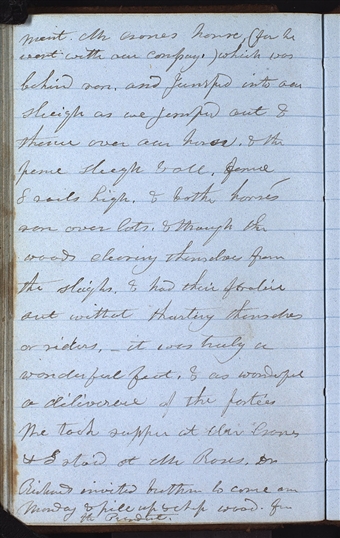 ment. Mr Crones house, (for he
went with our company.) which was
behind ran, and Jumped into our
sleigh as we jumped out &
thence over our horse, & the
fence sleigh & all, fence
8 rails high. & bothe horses
ran over lots. & through the
woods clearing themselves from
the sleighs. & had their
out without Hurting themselves
or riders, – it was truly a
wonderful feat. & as wonderful
a deliverence of the parties
We took supper at Mr Crones
& I staid at Mr Roses. Dr
Richards invited brethren to come on
Monday & pile up & chop wood. for
the Prophet.